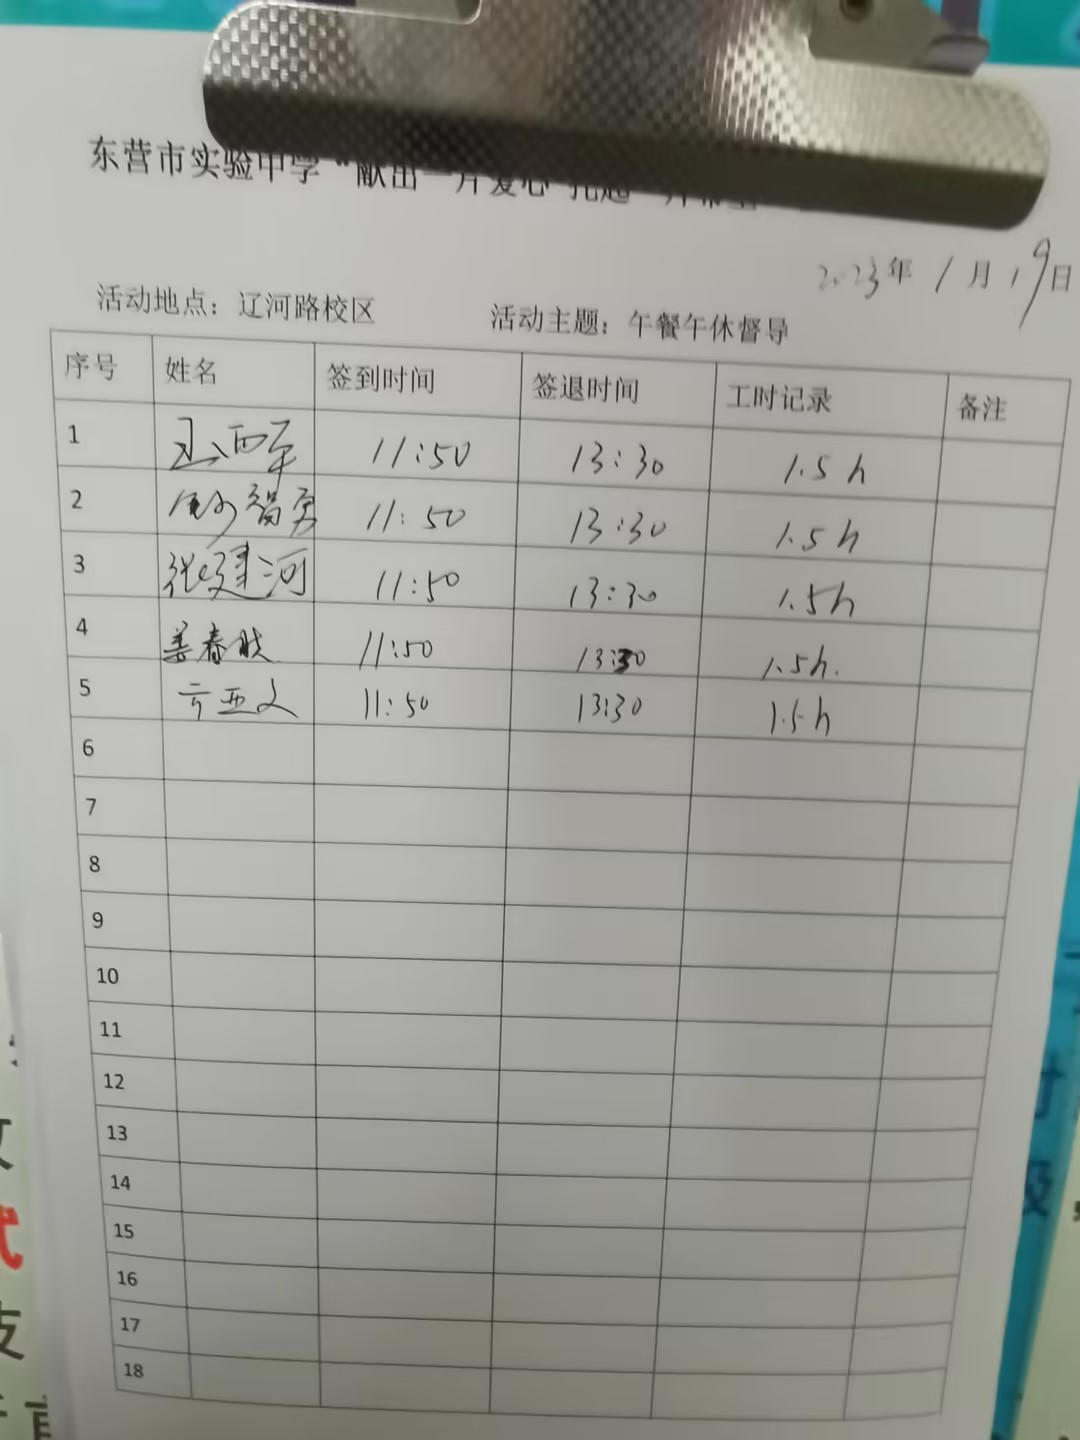 东营市实验中学“献出一片爱心 托起一片希望
2023年 1月 19日
活动地点：辽河路校区 活动主题：午餐午休督导
序号 姓名 签到时间 签退时间 工时记录 备注
1 11:50 13:30 1.5h
2 智勇 11:50 13:30 1.5h
3 张建河 11:50 13:30 1.5h
4 姜春 11:50 13:30 1.5h.
5 亚文 11:50 13:30 1.5h
6
7
8
9
10
11
12
13
14
15
16
17
18